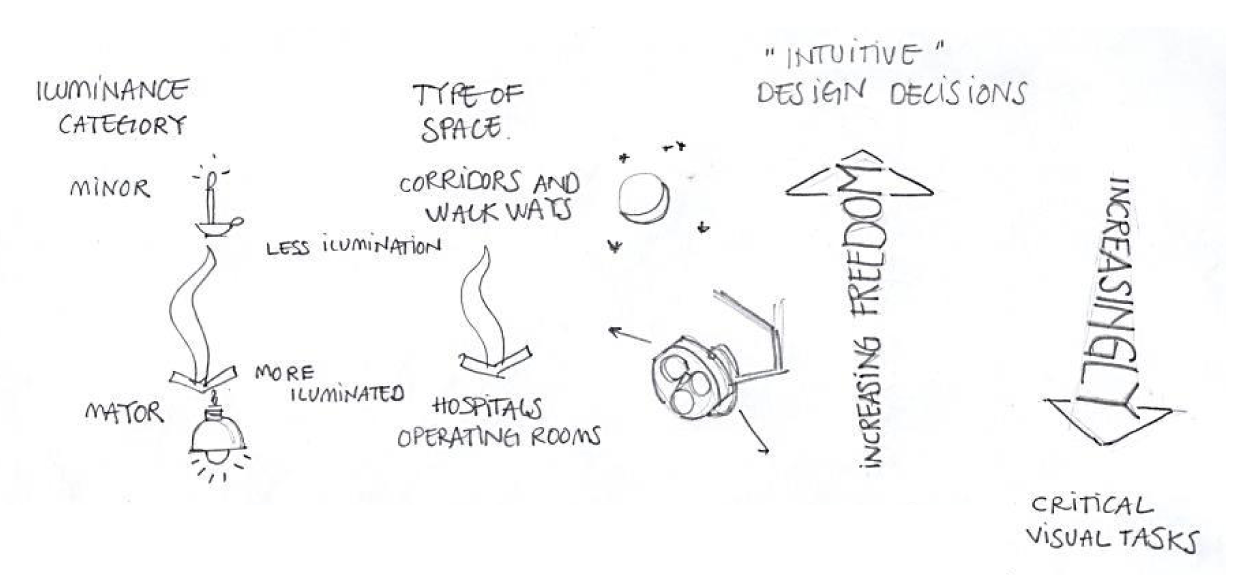 ILUMINANCE
CATEGORY
MINOR
LESS ILUMINATION
MORE
ILUMINATED
MATOR
TYPE OF
SPACE.
CORRIDORS AND
WALK WAYS
HOSPITALS
OPERATING ROOMS
"INTUITIVE"
DESIGN DECISIONS
INCREASING FREEDOM
INCREASINGLY
CRITICAL
VISUAL TASKS